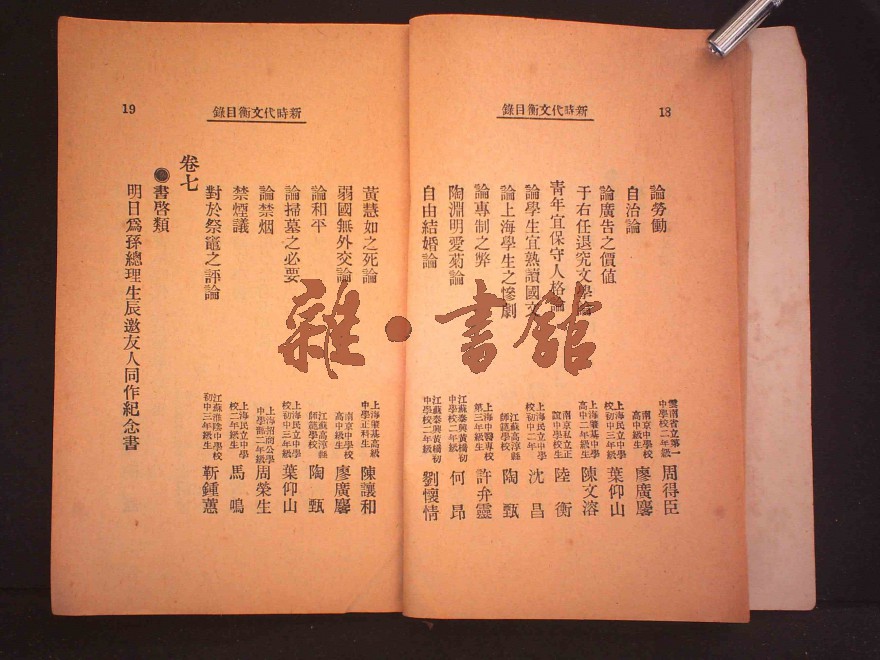 18
新時代文衡目錄
論勞働 雲南省立第一中學校二年級 周得臣
自治論 南京中學校高中二年級 廖廣麐
論廣告之價值 上海民立中學校初中三年級 葉仰山
于右任退究文學論 上海肇基中學高中二年級 陳文溶
青年宜保守人格論 南京私立正誼中學校生 陸衡
論學生宜熟讀國文 上海民立中學校初中二年級 沈昌
論上海學生之慘劇 江蘇高淳縣師範學校 陶甄
論專制之弊 上海中醫專校第三年級生 許弁靈
陶淵明愛菊論 江蘇泰興黃橋初中學校二年級 何昂
自由結婚論 江蘇泰興黃橋初中學校二年級 劉懷情
新時代文衡目錄
19
黃慧如之死論 上海肇基高級中學正科生 陳讓和
弱國無外交論 南京中學校高中二年級 廖廣麐
論和平 江蘇高淳縣師範學校 陶甄
論掃墓之必要 上海民立中學校初中三年級 葉仰山
論禁烟 上海招商公學中學部二年級 周榮生
禁煙議 上海民立中學校二年級生 馬鳴
對於祭竈之評論 江蘇淮陰中學校初中三年級生 靳鍾蕙
卷七
●書啓類
明日爲孫總理生辰邀友人同作紀念書
雜·書館